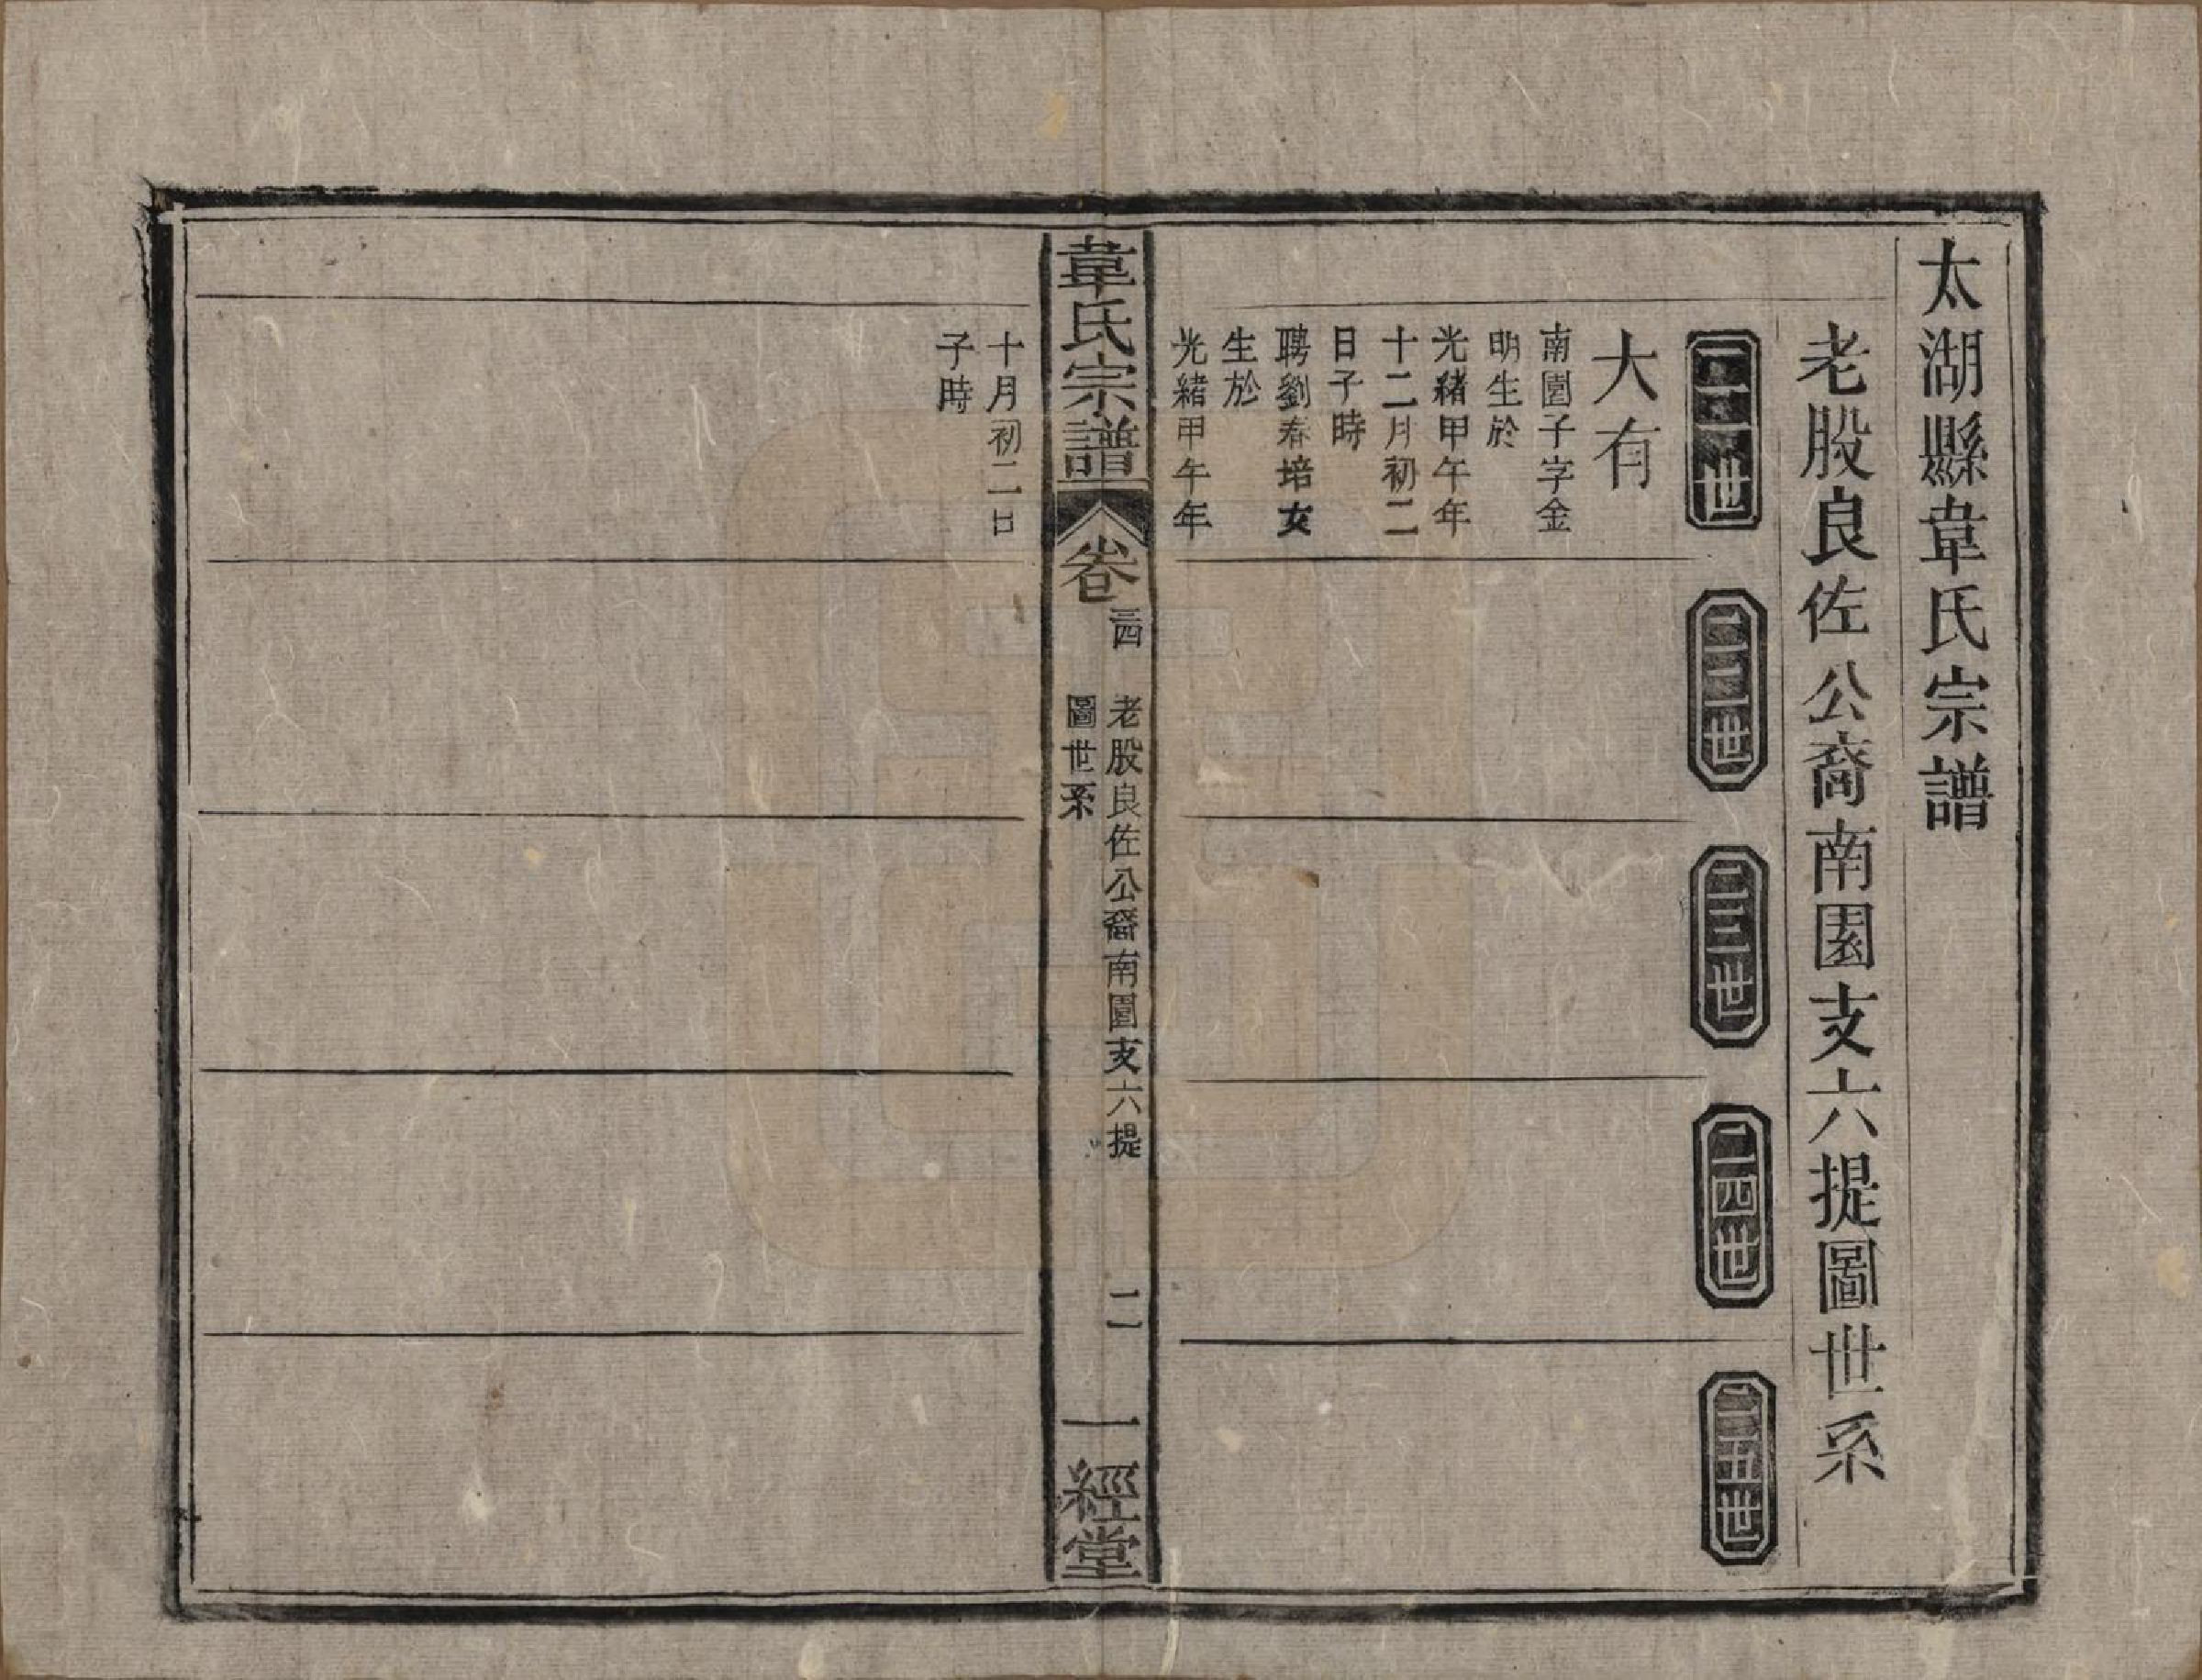 太湖縣韋氏宗譜
老股良佐公裔南園支六提圖世系
二一世
二二世
二三世
二四世
二五世
大有
南園子字金
明生於
光緒甲午年
十二月初二
日子時
聘劉春培女
生於
光緒甲午年
韋氏宗譜
卷
三四
老股良佐公裔南園支六提
圖世系
二
一經堂
十月初二日
子時